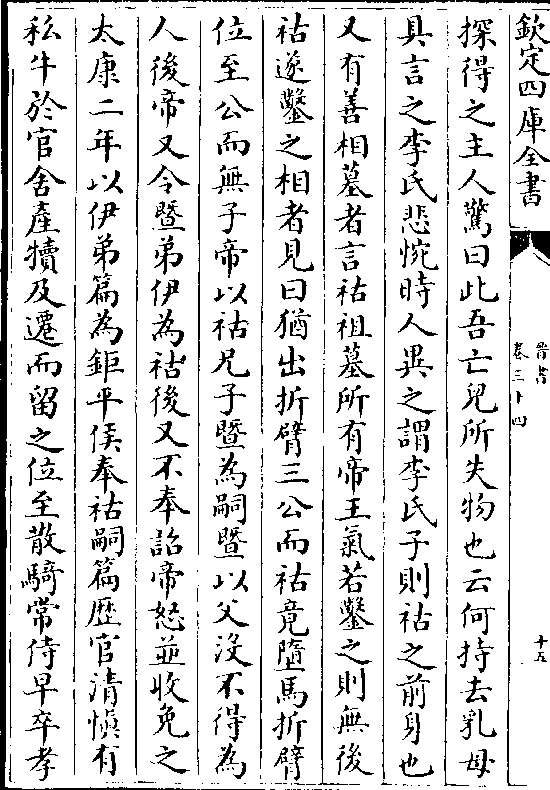 欽定四庫全書
晉書
卷三十四
十五
探得之主人驚曰此吾亡兒所失物也云何持去乳母
具言之李氏悲惋時人異之謂李氏子則祜之前身也
又有善相墓者言祜祖墓所有帝王氣若鑿之則無後
祜遂鑿之相者見曰猶出折臂三公而祜竟墮馬折臂
位至公而無子帝以祜兄子暨為嗣暨以父沒不得為
人後帝又令暨弟伊為祜後又不奉詔帝怒並收免之
太康二年以伊弟篇為鉅平侯奉祜嗣篇歴官清慎有
私牛於官舍產犢及遷而留之位至散騎常侍早卒孝